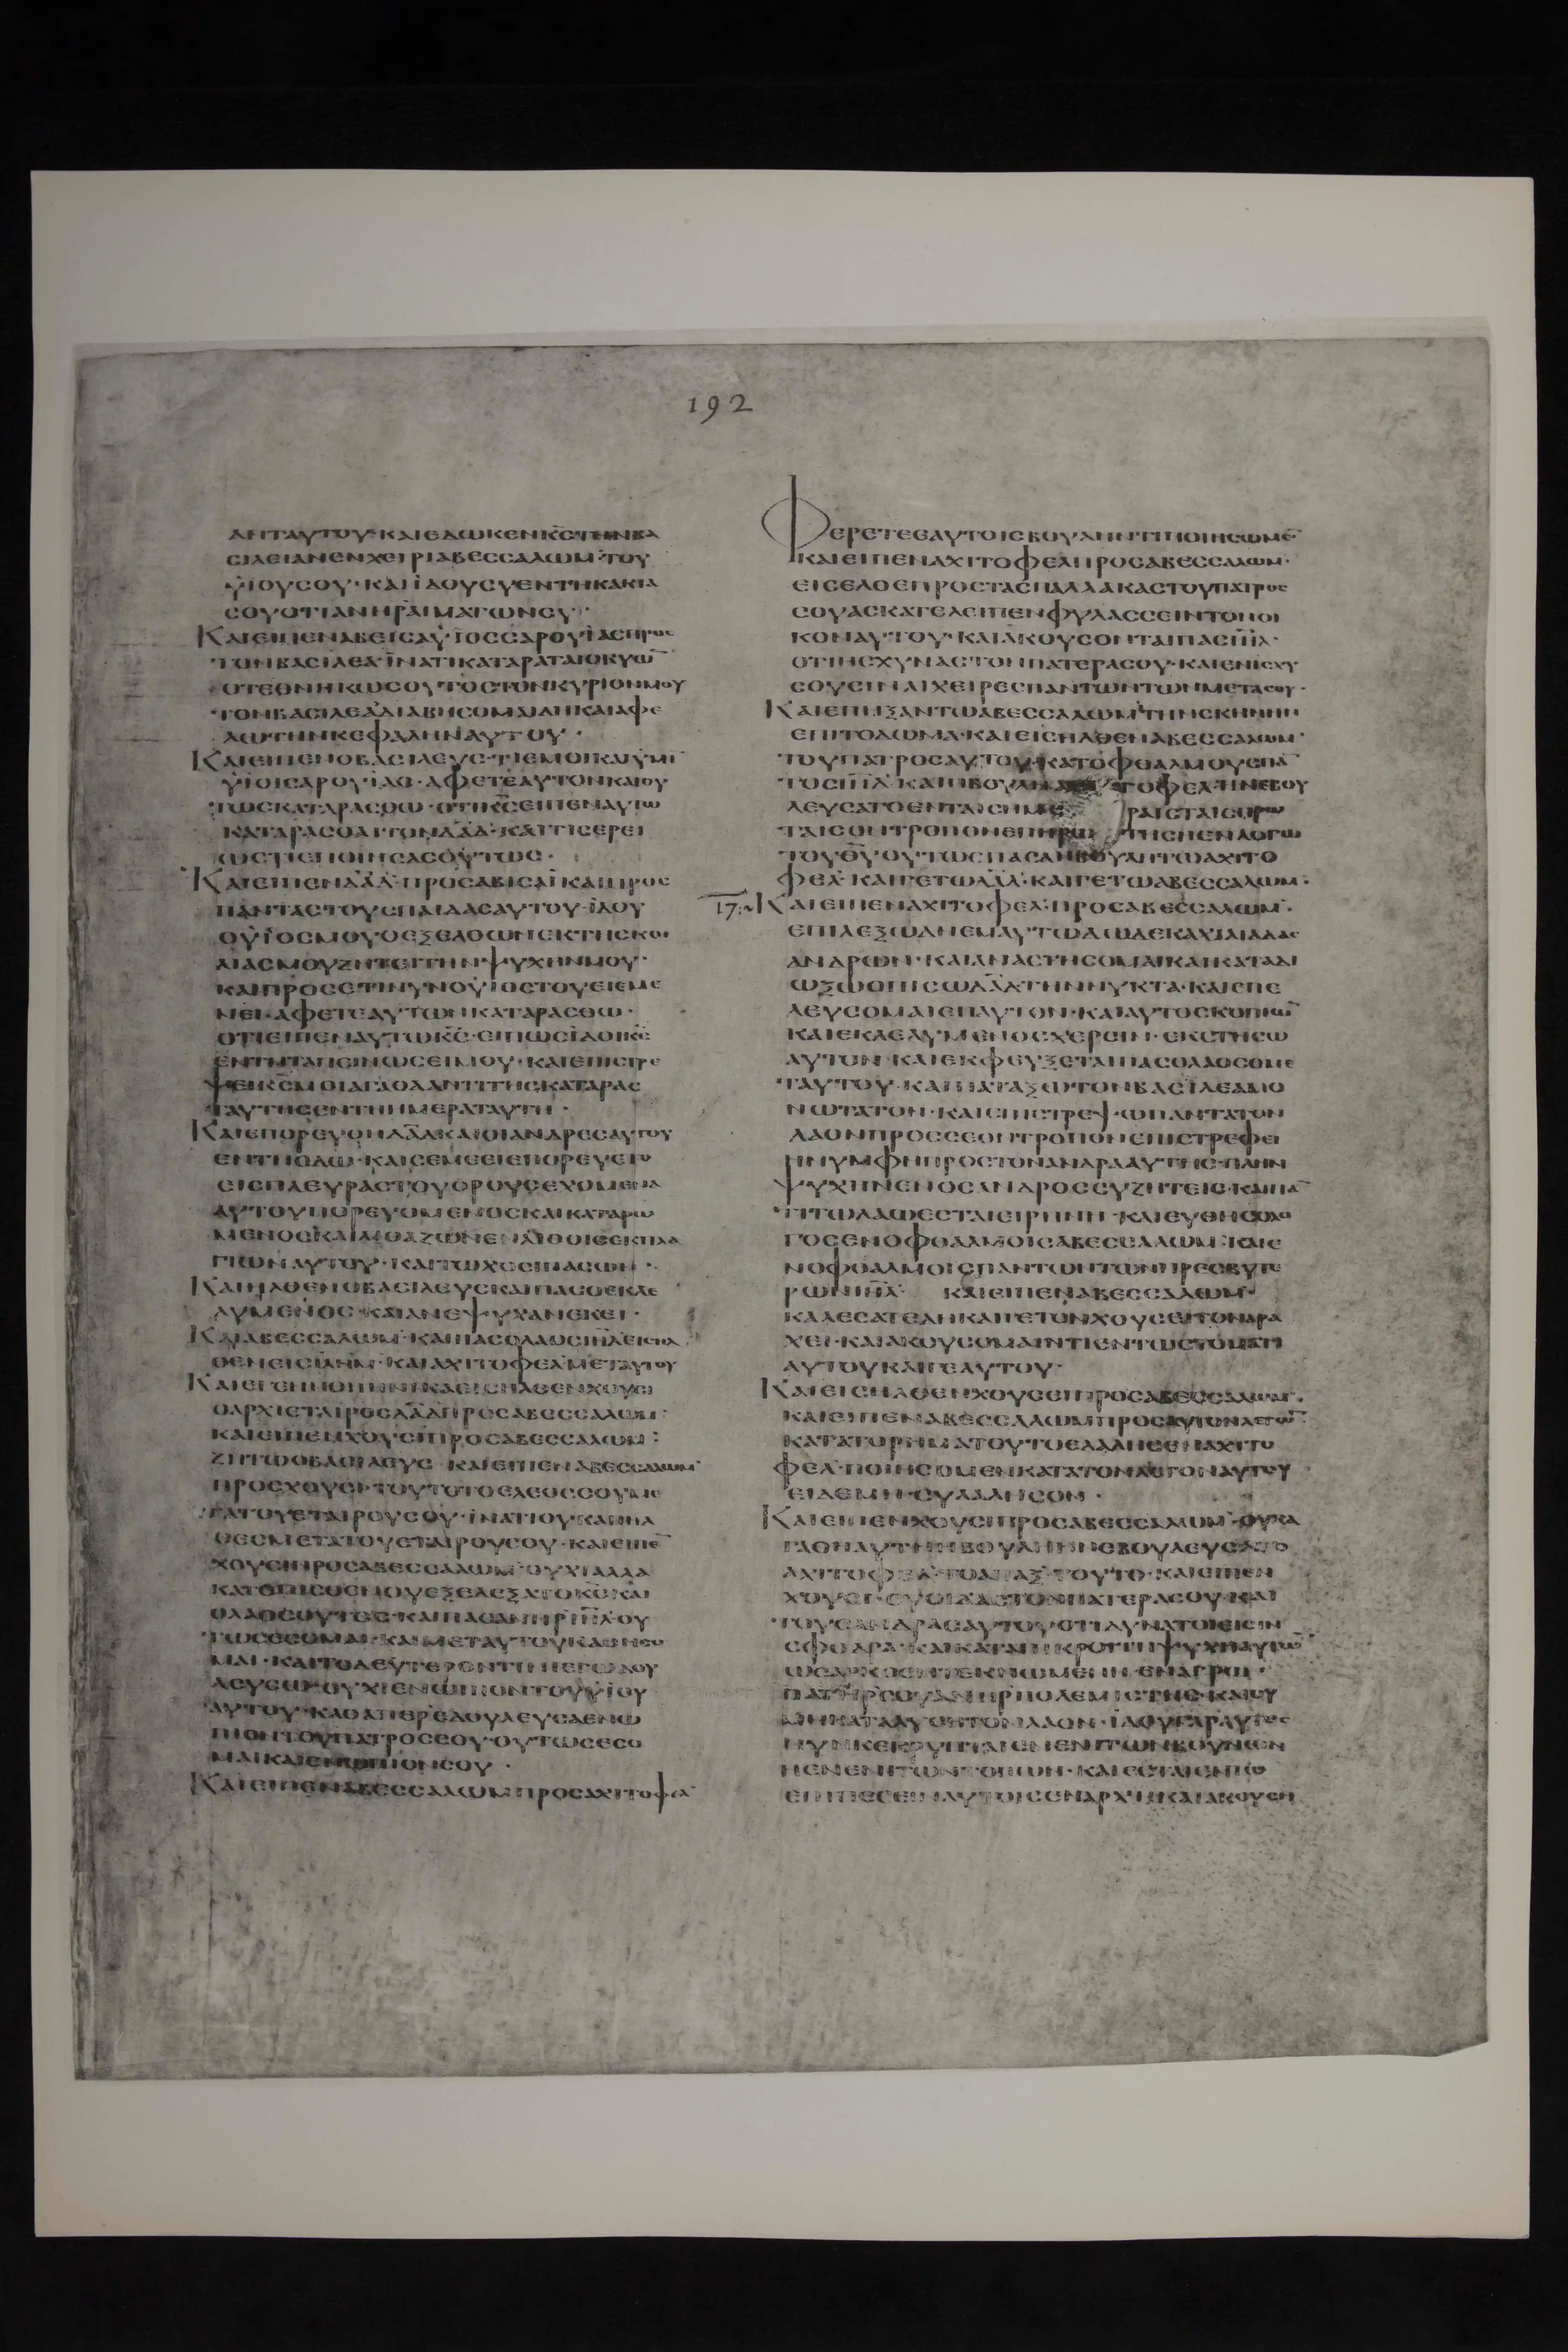 192
ΑΝΤΑΥΤΟΥ·ΚΑΙΕΔΩΚΕΝΚ̅Ϲ̅ΤΗΝΒΑ
ϹΙΛΕΙΑΝΕΝΧΕΙΡΙΑΒΕϹϹΑΛΩΜ·ΤΟΥ
ΥΙΟΥϹΟΥ·ΚΑΙΙΔΟΥϹΥΕΝΤΗΚΑΚΙΑ
ϹΟΥΟΤΙΑΝΗΡΑΙΜΑΤΩΝϹΥ·
ΚΑΙΕΙΠΕΝΑΒΕΙϹΑΥΪΟϹϹΑΡΟΥΪΑϹΠΡΟϹ
ΤΟΝΒΑϹΙΛΕΑΪΝΑΤΙΚΑΤΑΡΑΤΑΙΟΚΥΩ̅
ΟΤΕΘΝΗΚΩϹΟΥΤΟϹΤΟΝΚΥΡΙΟΝΜΟΥ
ΤΟΝΒΑϹΙΛΕΑΔΙΑΒΗϹΟΜΑΙΔΗΚΑΙΑΦΕ
ΛΩΤΗΝΚΕΦΑΛΗΝΑΥΤΟΥ·
ΚΑΙΕΙΠΕΝΟΒΑϹΙΛΕΥϹ·ΤΙΕΜΟΙΚΑΙΥΜΙ̅
ΥΙΟΙϹΑΡΟΥΪΑΘ·ΑΦΕΤΕΑΥΤΟΝΚΑΙΟΥ
ΤΩϹΚΑΤΑΡΑϹΘΩ·ΟΤΙΚ̅Ϲ̅ΕΙΠΕΝΑΥΤΩ
ΚΑΤΑΡΑϹΘΑΙΤΟΝΔ̅Α̅Δ̅·ΚΑΙΤΙϹΕΡΕΙ
ΩϹΤΙΕΠΟΙΗϹΑϹΟΥΤΩϹ·
ΚΑΙΕΙΠΕΝΔ̅Α̅Δ̅·ΠΡΟϹΑΒΙϹΑΪΚΑΙΠΡΟϹ
ΠΑΝΤΑϹΤΟΥϹΠΑΙΔΑϹΑΥΤΟΥ·ΪΔΟΥ
ΟΥΙΟϹΜΟΥΟΕΞΕΛΘΩΝΕΚΤΗϹΚΟΙ
ΛΙΑϹΜΟΥΖΗΤΕΙΤΗΝΨΥΧΗΝΜΟΥ·
ΚΑΙΠΡΟϹΕΤΙΝΥΝΟΥΙΟϹΤΟΥΕΙΕΜΕ
ΝΕΙ·ΑΦΕΤΕΑΥΤΩΝΚΑΤΑΡΑϹΘΩ·
ΟΤΙΕΙΠΕΝΑΥΤΩΚ̅Ϲ̅·ΕΙΠΩϹΪΔΟΙΚ̅Ϲ̅
ΕΝΤΗΤΑΠΕΙΝΩϹΕΙΜΟΥ·ΚΑΙΕΠΙϹΤΡΕ
ΨΕΙΚ̅Ϲ̅ΜΟΙΑΓΑΘΑΑΝΤΙΤΗϹΚΑΤΑΡΑϹ
ΤΑΥΤΗϹΕΝΤΗΗΜΕΡΑΤΑΥΤΗ·
ΚΑΙΕΠΟΡΕΥΘΗΔ̅Α̅Δ̅ΚΑΙΟΙΑΝΔΡΕϹΑΥΤΟΥ
ΕΝΤΗΟΔΩ·ΚΑΙϹΕΜΕΕΙΕΠΟΡΕΥΕΤΟ
ΕΙϹΠΛΕΥΡΑϹΤΟΥΟΡΟΥϹΕΧΟΜΕΝΑ
ΑΥΤΟΥΠΟΡΕΥΟΜΕΝΟϹΚΑΙΚΑΤΑΡΩ
ΜΕΝΟϹΚΑΙΛΙΘΑΖΩΝΕΝΛΙΘΟΙϹΕΚΠΛΑ
ΓΙΩΝΑΥΤΟΥ·ΚΑΙΤΩΧΟΕΙΠΑϹΩΝ·
ΚΑΙΗΛΘΕΝΟΒΑϹΙΛΕΥϹΚΑΙΠΑϹΟΕΚΛΕ
ΛΥΜΕΝΟϹ·ΚΑΙΑΝΕΨΥΧΑΝΕΚΕΙ·
ΚΑΙΑΒΕϹϹΑΛΩΜ·ΚΑΙΠΑϹΟΛΑΟϹΙ̅Η̅Λ̅ΕΙϹΗΛ
ΘΕΝΕΙϹΙ̅Λ̅Η̅Μ̅·ΚΑΙΑΧΙΤΟΦΕΛΜΕΤΑΥΤΟΥ
ΚΑΙΕΓΕΝΗΘΗΗΝΙΚΑΕΙϹΗΛΘΕΝΧΟΥϹΙ
ΟΑΡΧΙΕΤΑΙΡΟϹΔ̅Α̅Δ̅ΠΡΟϹΑΒΕϹϹΑΛΩΜ·
ΚΑΙΕΙΠΕΝΧΟΥϹΙΠΡΟϹΑΒΕϹϹΑΛΩΜ:
ΖΗΤΩΟΒΑϹΙΛΕΥϹ ΚΑΙΕΙΠΕΝΑΒΕϹϹΑΛΩΜ
ΠΡΟϹΧΟΥϹΙ·ΤΟΥΤΟΤΟΕΛΕΟϹϹΟΥΜΕ
ΤΑΤΟΥΕΤΑΙΡΟΥϹΟΥ·ΪΝΑΤΙΟΥΚΑΠΗΛ
ΘΕϹΜΕΤΑΤΟΥΕΤΑΙΡΟΥϹΟΥ·ΚΑΙΕΙΠΕ̅
ΧΟΥϹΙΠΡΟϹΑΒΕϹϹΑΛΩΜ·ΟΥΧΙΑΛΛΑ
ΚΑΤΟΠΙϹΘΕΝΟΥΕΞΕΛΕΞΑΤΟΚ̅Ϲ̅ΚΑΙ
ΟΛΑΟϹΟΥΤΟϹ·ΚΑΙΠΑϹΑΝΗΡΙ̅Η̅Λ̅ΟΥ
ΤΩϹΕϹΟΜΑΙ·ΚΑΙΜΕΤΑΥΤΟΥΚΑΘΗϹΟ
ΜΑΙ·ΚΑΙΤΟΔΕΥΤΕΡΟΝΤΙΝΙΕΓΩΔΟΥ
ΛΕΥϹΩ·ΟΥΧΙΕΝΩΠΙΟΝΤΟΥΥΙΟΥ
ΑΥΤΟΥ·ΚΑΘΑΠΕΡΕΔΟΥΛΕΥϹΑΕΝΩ
ΠΙΟΝΤΟΥΠΑΤΡΟϹϹΟΥ·ΟΥΤΩϹΕϹΟ
ΜΑΙΚΑΙΕΝΩΠΙΟΝϹΟΥ·
ΚΑΙΕΙΠΕΝΑΒΕϹϹΑΛΩΜΠΡΟϹΑΧΙΤΟΦΕΛ
ΦΕΡΕΤΕΕΑΥΤΟΙϹΒΟΥΛΗΝΤΙΠΟΙΗϹΩΜΕ̅
ΚΑΙΕΙΠΕΝΑΧΙΤΟΦΕΛΠΡΟϹΑΒΕϹϹΑΛΩΜ·
ΕΙϹΕΛΘΕΠΡΟϹΤΑϹΠΑΛΛΑΚΑϹΤΟΥΠΑΤΡΟϹ
ϹΟΥΑϹΚΑΤΕΛΕΙΠΕΝΦΥΛΑϹϹΕΙΝΤΟΝΟΙ
ΚΟΝΑΥΤΟΥ·ΚΑΙΑΚΟΥϹΟΝΤΑΙΠΑϹΙ̅Η̅Λ̅·
ΟΤΙΗϹΧΥΝΑϹΤΟΝΠΑΤΕΡΑϹΟΥ·ΚΑΙΕΝΙϹΧΥ
ϹΟΥϹΙΝΑΙΧΕΙΡΕϹΠΑΝΤΩΝΤΩΝΜΕΤΑϹΟΥ·
ΚΑΙΕΠΗΞΑΝΤΩΑΒΕϹϹΑΛΩΜΤΗΝϹΚΗΝΗΝ
ΕΠΙΤΟΔΩΜΑ·ΚΑΙΕΙϹΗΛΘΕΝΑΒΕϹϹΑΛΩΜ·
ΤΟΥΠΑΤΡΟϹΑΥΤΟΥ·ΚΑΤΟΦΘΑΛΜΟΥϹΠΑ̅
ΤΟϹΙ̅Η̅Λ̅ ΚΑΙΗΒΟΥΛΗ ΤΟΦΕΛ·ΗΝΕΒΟΥ
ΛΕΥϹΑΤΟΕΝΤΑΙϹΗΜΕ ΡΑΙϹΤΑΙϹΠΡΩ
ΤΑΙϹΟΝΤΡΟΠΟΝΕΠΗΡΩ ΤΗϹΗΕΝΛΟΓΩ
ΤΟΥΘ̅Υ̅·ΟΥΤΩϹΠΑϹΑΗΒΟΥΛΗΤΩΑΧΙΤΟ
ΦΕΛ·ΚΑΙΓΕΤΩΔ̅Α̅Δ̅·ΚΑΙΓΕΤΩΑΒΕϹϹΑΛΩΜ·
17:
ΚΑΙΕΙΠΕΝΑΧΙΤΟΦΕΛ·ΠΡΟϹΑΒΕϹϹΑΛΩΜ·
ΕΠΙΛΕΞΩΔΗΕΜΑΥΤΩΔΩΔΕΚΑΧΙΛΙΑΔΑϹ
ΑΝΔΡΩΝ·ΚΑΙΑΝΑϹΤΗϹΟΜΑΙΚΑΙΚΑΤΑΔΙ
ΩΞΩΟΠΙϹΩΔ̅Α̅Δ̅ΤΗΝΝΥΚΤΑ·ΚΑΙΕΠΕ
ΛΕΥϹΟΜΑΙΕΠΑΥΤΟΝ·ΚΑΙΑΥΤΟϹΚΟΠΙΩ̅
ΚΑΙΕΚΛΕΛΥΜΕΝΟϹΧΕΡϹΙΝ·ΕΚϹΤΗϹΩ
ΑΥΤΟΝ·ΚΑΙΕΚΦΕΥΞΕΤΑΙΠΑϹΟΛΑΟϹΟΜΕ
ΤΑΥΤΟΥ·ΚΑΙΠΑΤΑΞΩΤΟΝΒΑϹΙΛΕΑΜΟ
ΝΩΤΑΤΟΝ·ΚΑΙΕΠΙϹΤΡΕΨΩΠΑΝΤΑΤΟΝ
ΛΑΟΝΠΡΟϹϹΕΟΝΤΡΟΠΟΝΕΠΙϹΤΡΕΦΕΙ
ΗΝΥΜΦΗΠΡΟϹΤΟΝΑΝΔΡΑΑΥΤΗϹ·ΠΛΗΝ
ΨΥΧΗΝΕΝΟϹΑΝΔΡΟϹϹΥΖΗΤΕΙϹ·ΚΑΙΠΑ̅
ΤΙΤΩΛΑΩΕϹΤΑΙΕΙΡΗΝΗ·ΚΑΙΕΥΘΗϹΟΛΟ
ΓΟϹΕΝΟΦΘΑΛΜΟΙϹΑΒΕϹϹΑΛΩΜ·ΚΑΙΕ
ΝΟΦΘΑΛΜΟΙϹΠΑΝΤΩΝΤΩΝΠΡΕϹΒΥΤΕ
ΡΩΝΙ̅Η̅Λ̅· ΚΑΙΕΙΠΕΝΑΒΕϹϹΑΛΩΜ·
ΚΑΛΕϹΑΤΕΔΗΚΑΙΓΕΤΟΝΧΟΥϹΕΙΤΟΝΑΡΑ
ΧΕΙ·ΚΑΙΑΚΟΥϹΟΜΑΙΝΤΙΕΝΤΩϹΤΟΜΑΤΙ
ΑΥΤΟΥΚΑΙΓΕΑΥΤΟΥ·
ΚΑΙΕΙϹΗΛΘΕΝΧΟΥϹΕΙΠΡΟϹΑΒΕϹϹΑΛΩΜ·
ΚΑΙΕΙΠΕΝΑΒΕϹϹΑΛΩΜΠΡΟϹΑΥΤΟΝΛΕΓΩ̅
ΚΑΤΑΤΟΡΗΜΑΤΟΥΤΟΕΛΑΛΗϹΕΝΑΧΙΤΟ
ΦΕΛ·ΠΟΙΗϹΟΜΕΝΚΑΤΑΤΟΝΛΟΓΟΝΑΥΤΟΥ
ΕΙΔΕΜΗ·ϹΥΛΑΛΗϹΟΝ·
ΚΑΙΕΙΠΕΝΧΟΥϹΙΠΡΟϹΑΒΕϹϹΑΛΩΜ·ΟΥΚΑ
ΓΑΘΗΑΥΤΗΗΒΟΥΛΗΗΝΕΒΟΥΛΕΥϹΑΤΟ
ΑΧΙΤΟΦΕΛ·ΤΟΑΠΑΞ·ΤΟΥΤΟ·ΚΑΙΕΙΠΕΝ
ΧΟΥϹΙ·ϹΥΟΙΔΑϹΤΟΝΠΑΤΕΡΑϹΟΥ·ΚΑΙ
ΤΟΥϹΑΝΔΡΑϹΑΥΤΟΥΟΤΙΔΥΝΑΤΟΙΕΙϹΙΝ
ϹΦΟΔΡΑ·ΚΑΙΚΑΤΑΠΙΚΡΟΙΤΗΨΥΧΗΑΥΤΩ̅
ΩϹΑΡΚΟϹΗΤΕΚΝΩΜΕΝΗ·ΕΝΑΓΡΩ·
ΠΑΤΗΡϹΟΥΑΝΗΡΠΟΛΕΜΙϹΤΗϹ·ΚΑΙΟΥ
ΜΗΚΑΤΑΛΥϹΗΤΟΝΛΑΟΝ·ΪΔΟΥΓΑΡΑΥΤΟϹ
ΝΥΝΚΕΚΡΥΠΤΑΙΕΝΕΝΙΤΩΝΒΟΥΝΩΝ
ΗΕΝΕΝΙΤΩΝΤΟΠΩΝ·ΚΑΙΕϹΤΑΙΕΝΤΩ
ΕΠΙΠΕϹΕΙΝΑΥΤΟΙϹΕΝΑΡΧΗΚΑΙΑΚΟΥϹΗ